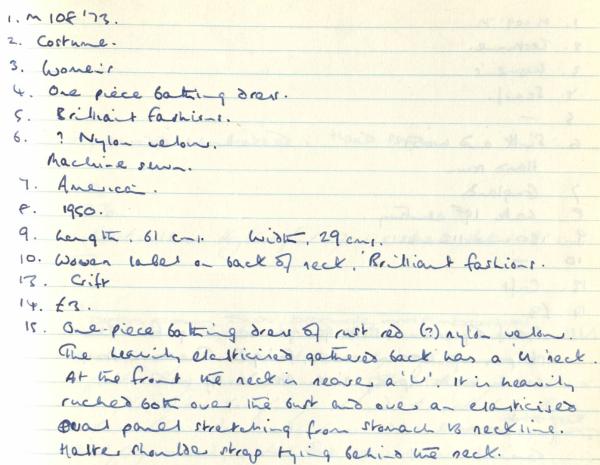 1. M 108 '73.
2. Costume.
3. Women's
4. One piece bathing dress.
5. Brilliant Fashions.
6. ? Nylon velour.
Machine sewn.
7. American.
8. 1950.
9. Length. 61 cms. Width. 29 cms.
10. Woven label on back of neck. 'Brilliant fashions.
13. Gift
14. £3.
15. One-piece bathing dress of rust red (?) nylon velour.
The heavily elasticised gathered back has a 'U' neck.
At the front the neck is nearer a 'V'. It is heavily
ruched both over the bust and over an elasticised
oval panel stretching from stomach to neckline.
Halter shoulder strap tying behind the neck.